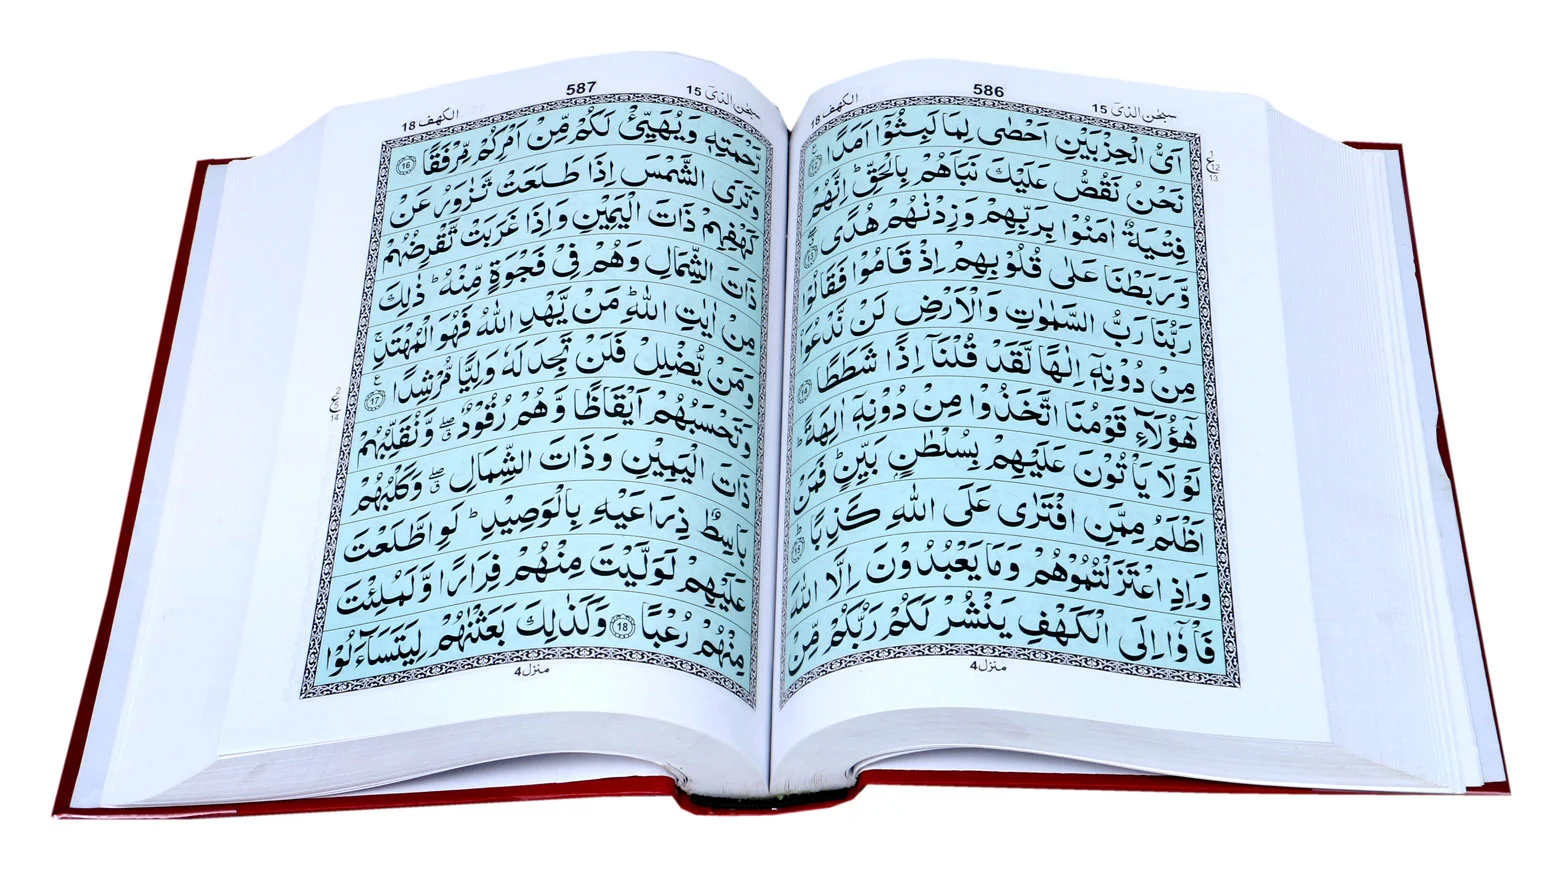 سبحٰن الذیٓ 15
586
الکهف 18
اَیُّ الْحِزْبَیْنِ اَحْصٰی لِمَا لَبِثُوْٓا اَمَدًا
نَحْنُ نَقُصُّ عَلَیْكَ نَبَاَهُمْ بِالْحَقِّ ؕ اِنَّهُمْ
فِتْیَةٌ اٰمَنُوْا بِرَبِّهِمْ وَزِدْنٰهُمْ هُدًی ۖ 13
وَّرَبَطْنَا عَلٰی قُلُوْبِهِمْ اِذْ قَامُوْا فَقَالُوْا
رَبُّنَا رَبُّ السَّمٰوٰتِ وَالْاَرْضِ لَنْ نَّدْعُوَا۟
مِنْ دُوْنِهٖٓ اِلٰهًا لَّقَدْ قُلْنَآ اِذًا شَطَطًا 14
هٰٓؤُلَآءِ قَوْمُنَا اتَّخَذُوْا مِنْ دُوْنِهٖٓ اٰلِهَةً ؕ
لَوْلَا یَاْتُوْنَ عَلَیْهِمْ بِسُلْطٰنٍۭ بَیِّنٍ ؕ فَمَنْ
اَظْلَمُ مِمَّنِ افْتَرٰی عَلَی اللّٰهِ کَذِبًا ؕ 15
وَاِذِ اعْتَزَلْتُمُوْهُمْ وَمَا یَعْبُدُوْنَ اِلَّا اللّٰهَ
فَاْوٗٓا اِلَی الْکَهْفِ یَنْشُرْ لَکُمْ رَبُّکُمْ مِّنْ
منزل 4
ع
12
13
سبحٰن الذیٓ 15
587
الکهف 18
رَّحْمَتِهٖ وَیُهَیِّئْ لَکُمْ مِّنْ اَمْرِکُمْ مِّرْفَقًا 16
وَتَرَی الشَّمْسَ اِذَا طَلَعَتْ تَّزٰوَرُ عَنْ
کَهْفِهِمْ ذَاتَ الْیَمِیْنِ وَاِذَا غَرَبَتْ تَّقْرِضُهُمْ
ذَاتَ الشِّمَالِ وَهُمْ فِیْ فَجْوَةٍ مِّنْهُ ؕ ذٰلِكَ
مِنْ اٰیٰتِ اللّٰهِ ؕ مَنْ یَّهْدِ اللّٰهُ فَهُوَ الْمُهْتَدِ ۚ
وَمَنْ یُّضْلِلْ فَلَنْ تَجِدَ لَهٗ وَلِیًّا مُّرْشِدًا 17 ع
وَتَحْسَبُهُمْ اَیْقَاظًا وَّهُمْ رُقُوْدٌ ۖ ق وَّنُقَلِّبُهُمْ
ذَاتَ الْیَمِیْنِ وَذَاتَ الشِّمَالِ ۖ ق وَکَلْبُهُمْ
بَاسِطٌ ذِرَاعَیْهِ بِالْوَصِیْدِ ؕ لَوِ اطَّلَعْتَ
عَلَیْهِمْ لَوَلَّیْتَ مِنْهُمْ فِرَارًا وَّلَمُلِئْتَ
مِنْهُمْ رُعْبًا 18 وَکَذٰلِكَ بَعَثْنٰهُمْ لِیَتَسَآءَلُوْا
منزل 4
2
ع
14